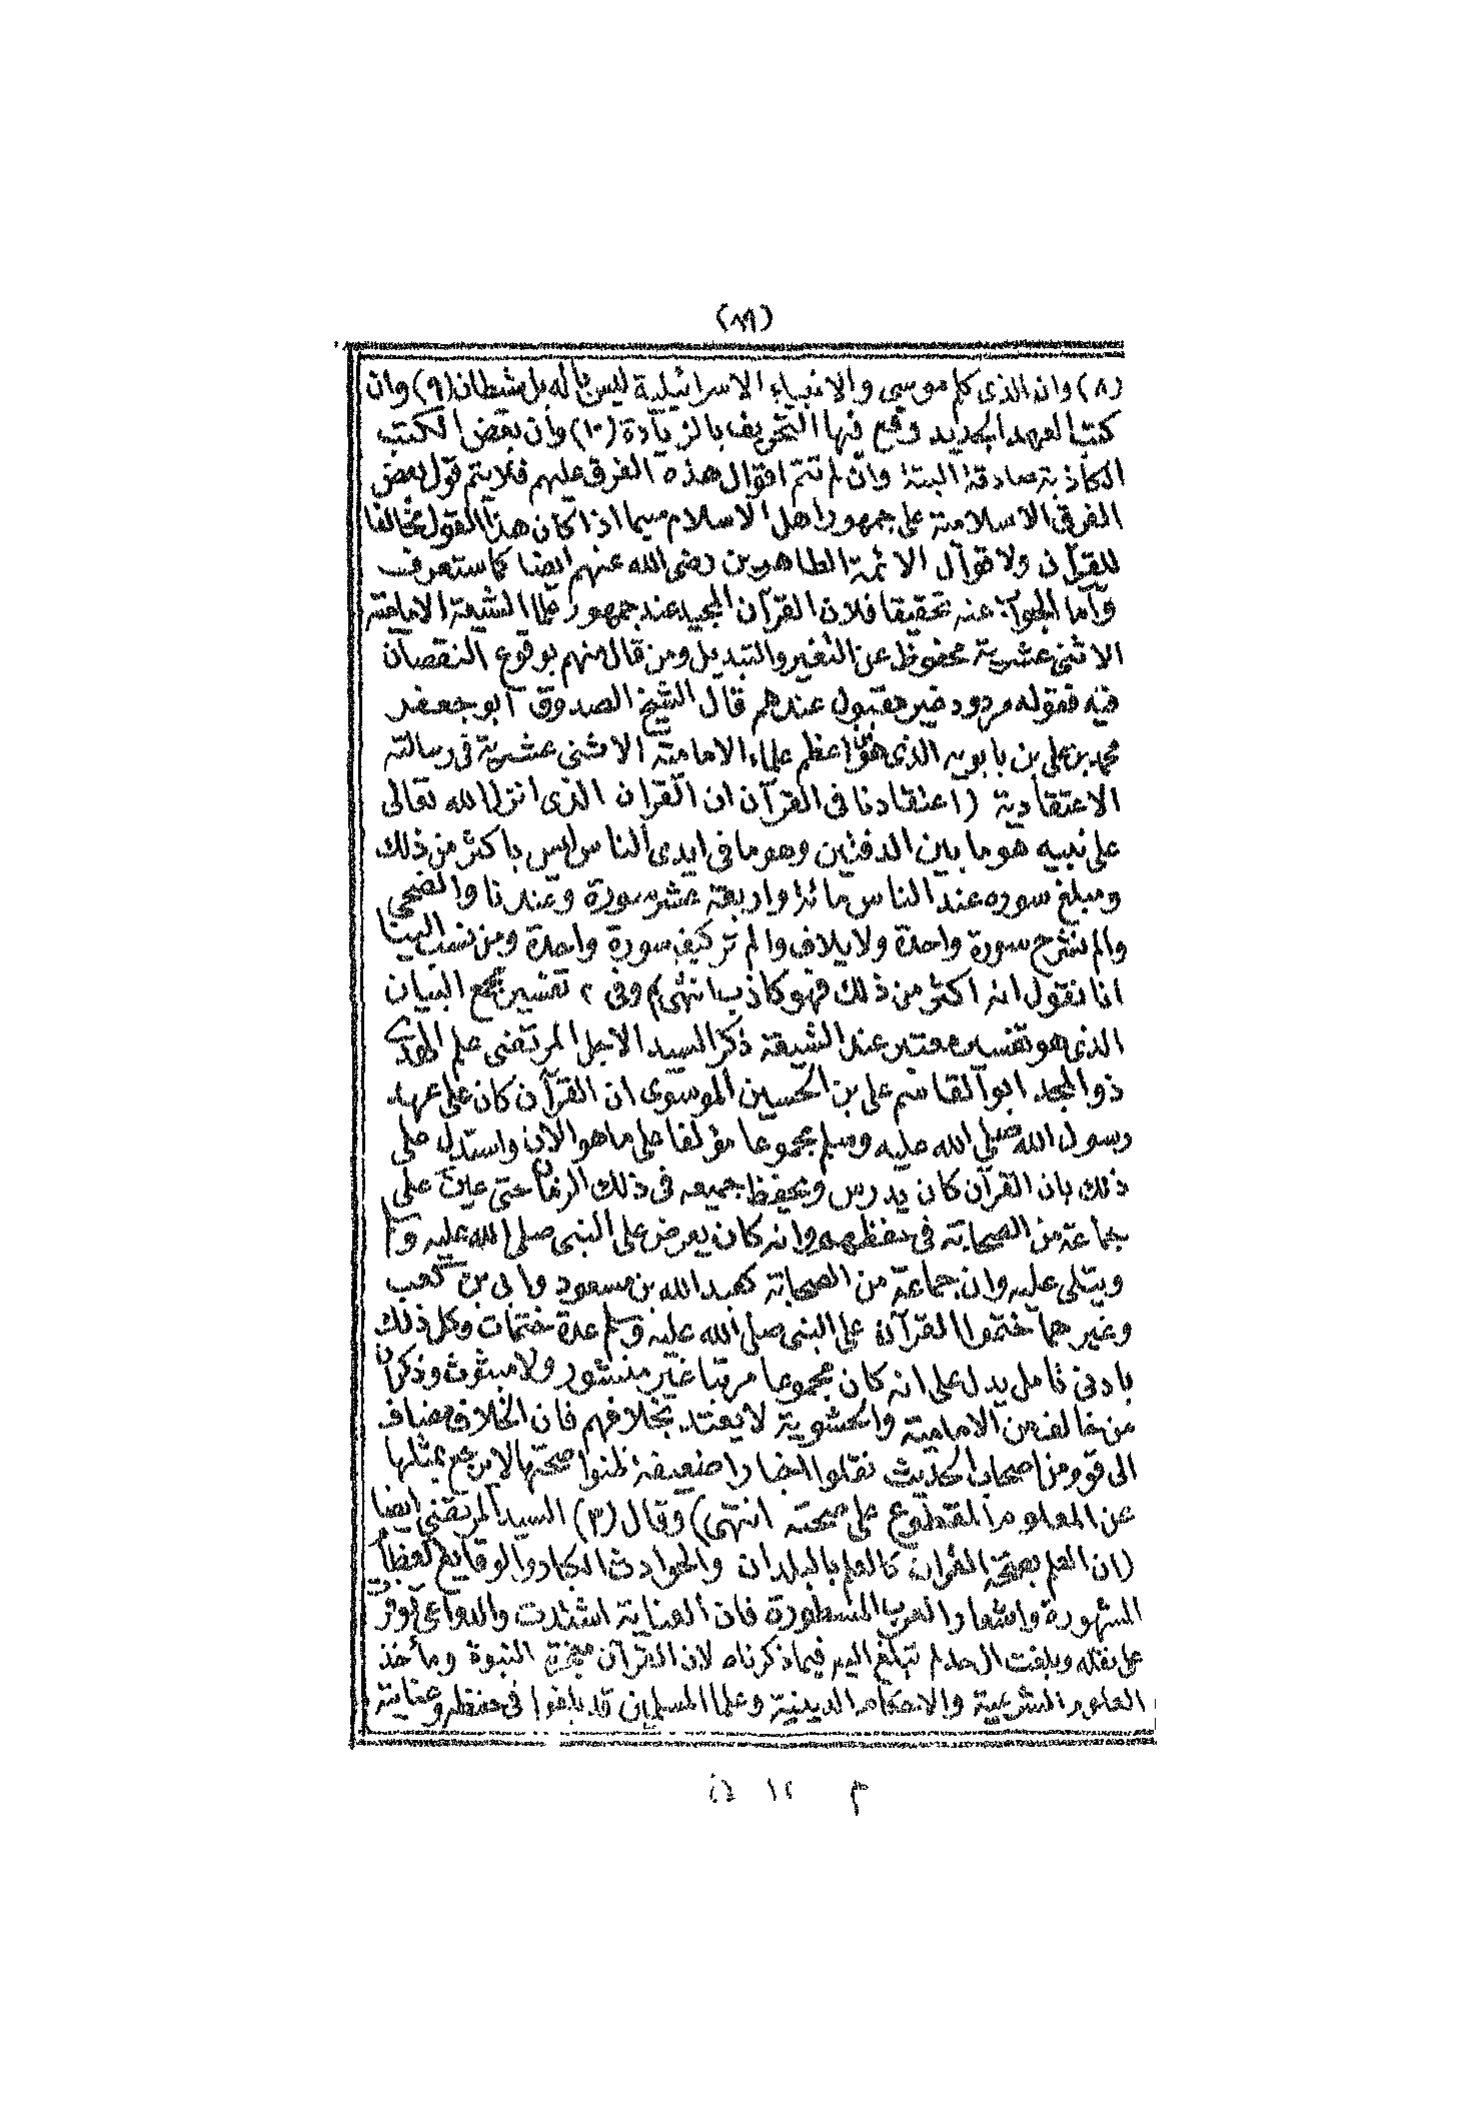 (٨٩)
(٨) وان الذى كلم موسى والانبياء الاسرائيلية ليس باله بل شيطان (٩) وان
كتب العهد الجديد وقع فيها التحريف بالزيادة (١٠) وان بعض الكتب
الكاذبة صادقة البتة وان لم تتم اقوال هذه الفرق عليهم فلا يتم قول بعض
الفرق الاسلامية على جمهور اهل الاسلام سيما اذا كان هذا القول مخالفا
للقرآن ولاقوال الائمة الطاهرين رضى الله عنهم ايضا كما ستعرف
واما الجواب عنه تحقيقا فلان القرآن المجيد عند جمهور علما الشيعة الامامية
الاثنى عشرية محفوظ عن التغير والتبديل ومن قال منهم بوقوع النقصان
فيه فقوله مردود غير مقبول عندهم قال الشيخ الصدوق ابو جعفر
محمد بن على بن بابويه الذى هو من اعظم علماء الامامية الاثنى عشرية فى رسالته
الاعتقادية (اعتقادنا فى القرآن ان القران الذى انزل الله تعالى
على نبيه هو ما بين الدفتين وهو ما فى ايدى الناس ليس باكثر من ذلك
ومبلغ سوره عند الناس مائة واربعة عشر سورة وعندنا والضحى
والم نشرح سورة واحدة ولايلاف والم تر كيف سورة واحدة ومن نسب الينا
انا نقول انه اكثر من ذلك فهو كاذب انتهى) وفى ٢ تفسير مجمع البيان
الذى هو تفسير معتبر عند الشيعة ذكر السيد الاجل المرتضى علم الهدى
ذو المجد ابو القاسم على بن الحسين الموسوى ان القرآن كان على عهد
رسول الله صلى الله عليه وسلم مجموعا مؤلفا على ما هو الان واستدل على
ذلك بان القرآن كان يدرس ويحفظ جميعه فى ذلك الزمان حتى عين على
جماعة من الصحابة فى حفظهم وانه كان يعرض على النبى صلى الله عليه و
ويتلى عليه وان جماعة من الصحابة كعبد الله بن مسعود وابى بن كعب
وغيرهما ختموا القرآن على النبى صلى الله عليه وسلم عدة ختمات وكل ذلك
بادنى تامل يدل على انه كان مجموعا مرتبا غير منشور ولا مبثوث وذكر ان
من خالف من الامامية والحشوية لا يعتد بخلافهم فان الخلاف مضاف
الى قوم من اصحاب الحديث نقلوا اخبارا ضعيفة ظنوا صحتها لا يرجع بمثلها
عن المعلوم المقطوع على صحته انتهى) وقال (٣) السيد المرتضى ايضا
(ان العلم بصحة القران كالعلم بالبلدان والحوادث الكبار والوقايع العظام
المشهورة واشعار العرب المسطورة فان العناية اشتدت والدواعى توفرت
على نقله وبلغت الى حد لم تبلغ اليه فيما ذكرناه لان القرآن معجزة النبوة ومأخذ
العلوم الشرعية والاحكام الدينية وعلما المسلمين قد بلغوا فى حفظه وعنايته
م ١٢